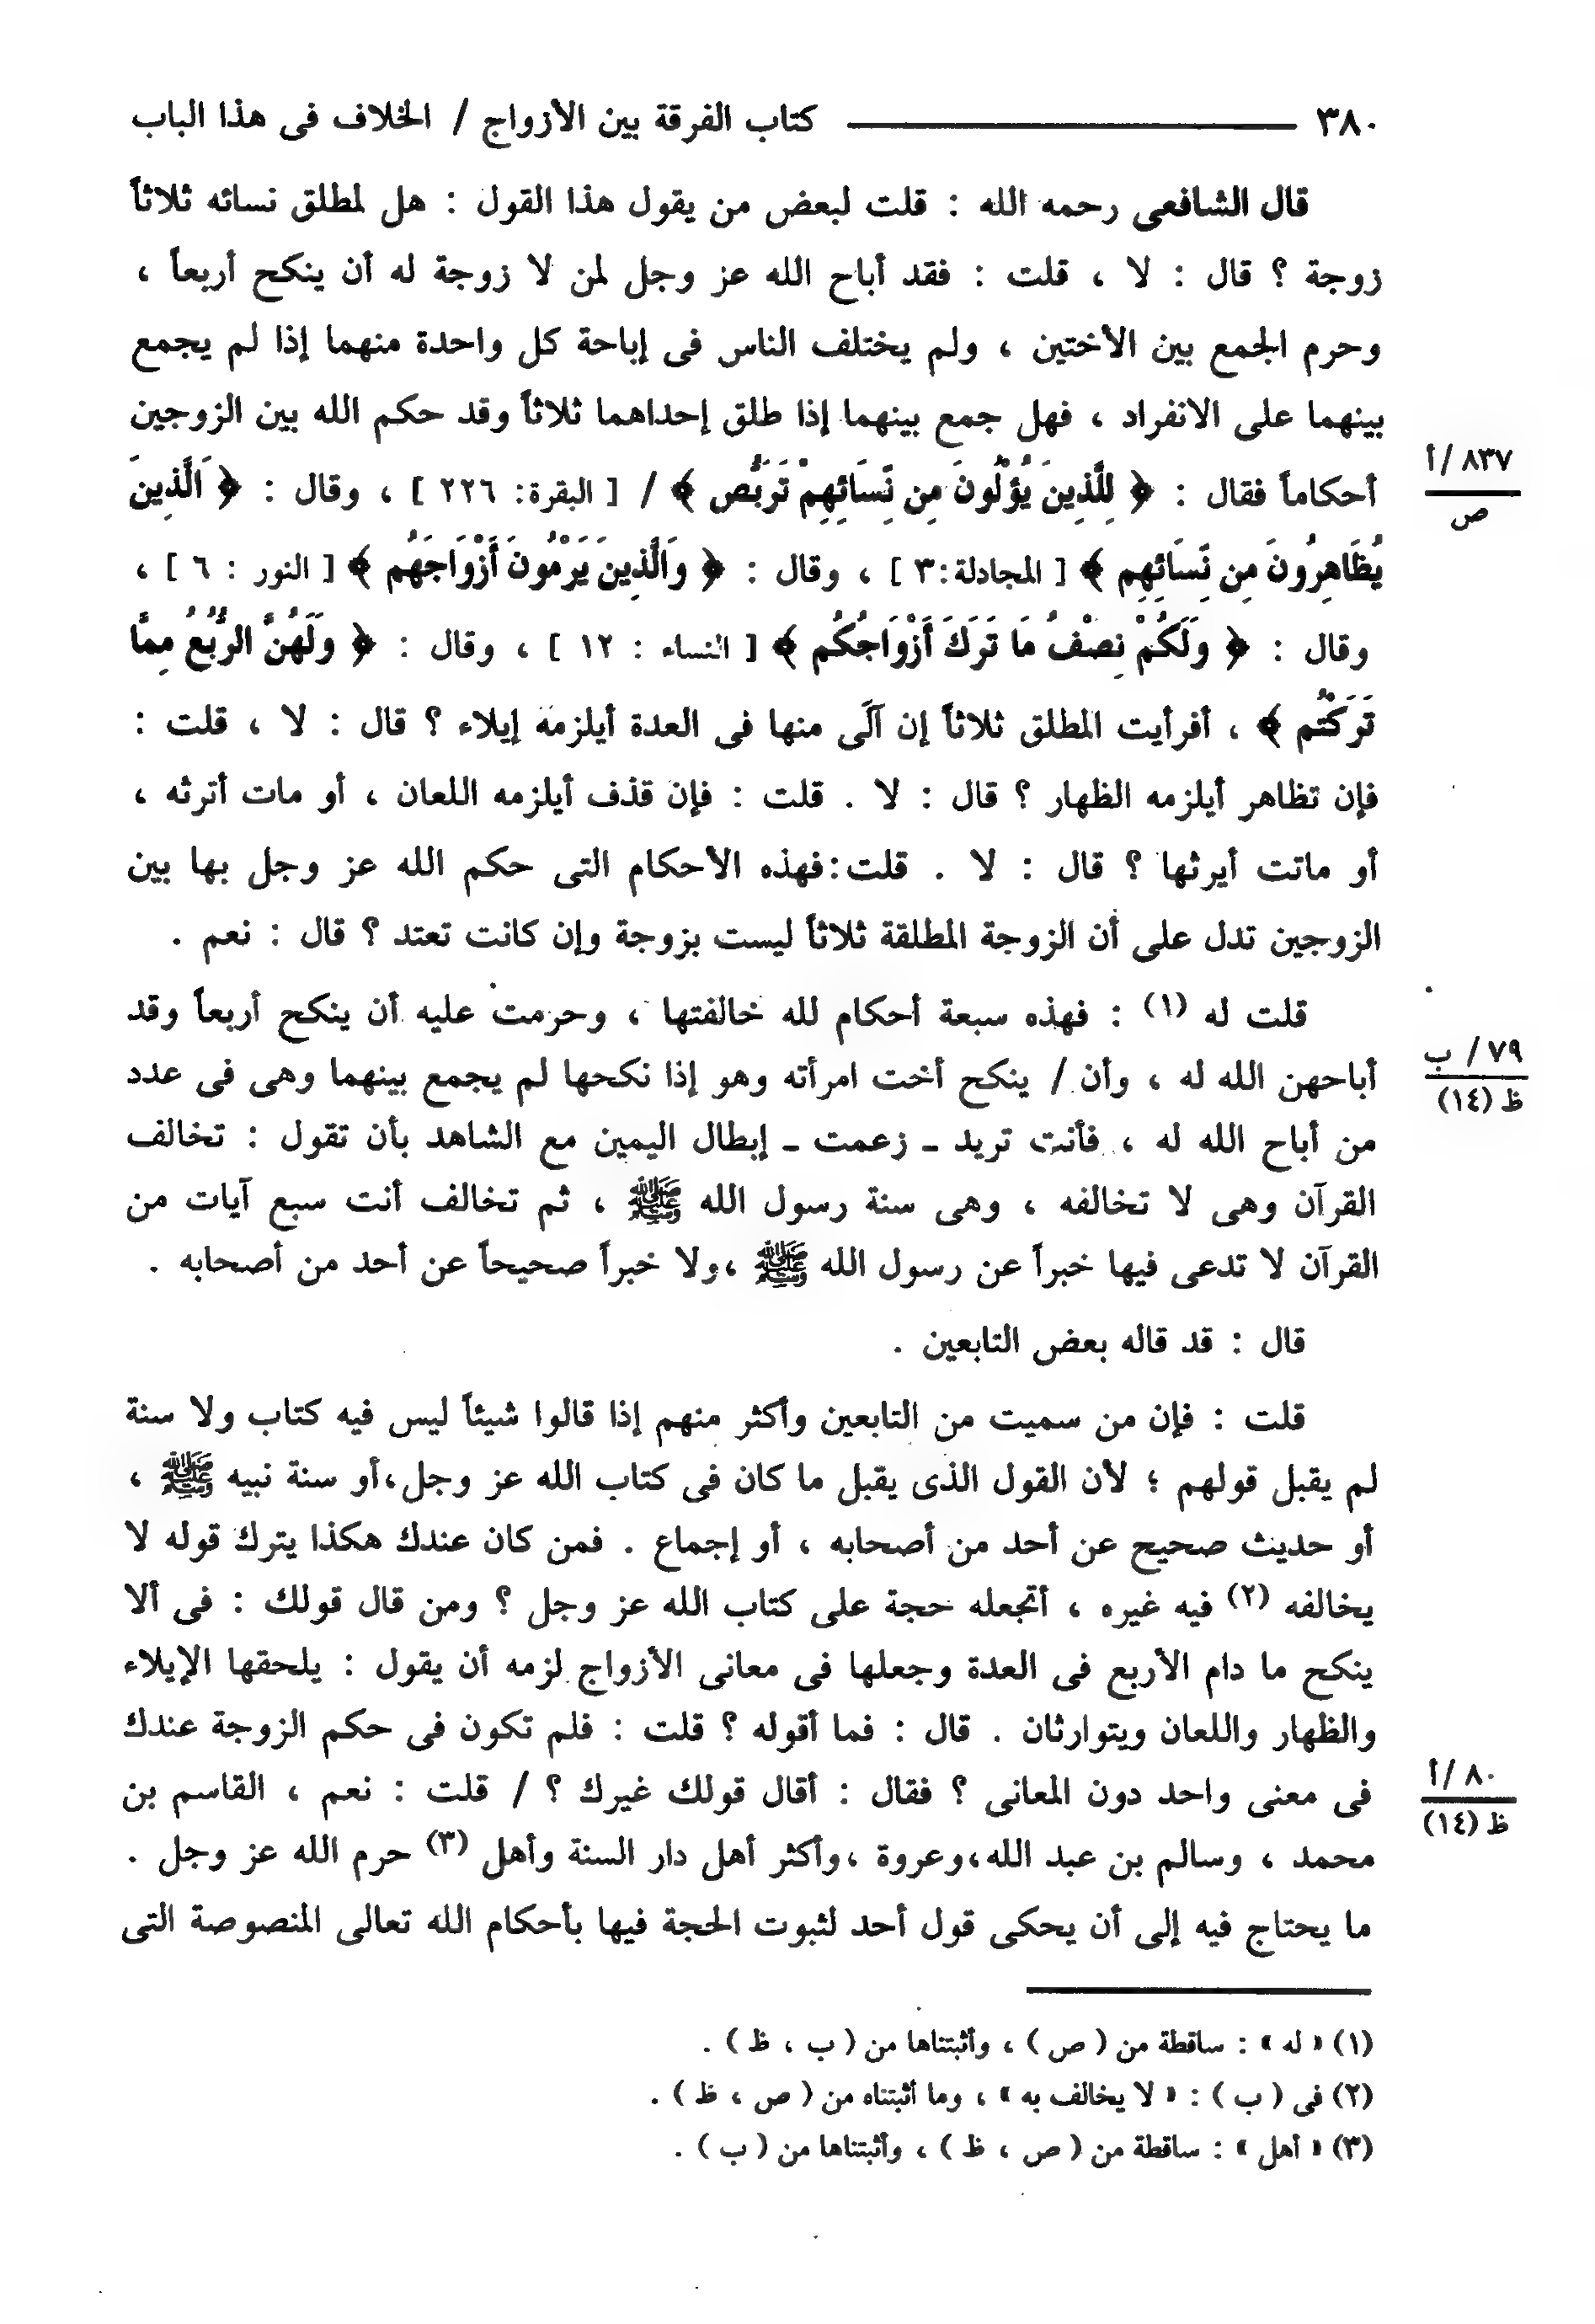 ٣٨٠ ــــــــــــــــــــ كتاب الفرقة بين الأزواج / الخلاف فى هذا الباب
قال الشافعى رحمه الله : قلت لبعض من يقول هذا القول : هل لمطلق نسائه ثلاثاً
زوجة ؟ قال : لا ، قلت : فقد أباح الله عز وجل لمن لا زوجة له أن ينكح أربعاً ،
وحرم الجمع بين الأختين ، ولم يختلف الناس فى إباحة كل واحدة منهما إذا لم يجمع
بينهما على الانفراد ، فهل جمع بينهما إذا طلق إحداهما ثلاثاً وقد حكم الله بين الزوجين
٨٣٧ /أ
ص
أحكاماً فقال : ﴿ لِلَّذِينَ يُؤْلُونَ مِن نِّسَائِهِمْ تَرَبُّص ﴾ / [ البقرة: ٢٢٦ ] ، وقال : ﴿ الَّذِينَ
يُظَاهِرُونَ مِن نِّسَائِهِم ﴾ [ المجادلة:٣ ] ، وقال : ﴿ وَالَّذِينَ يَرْمُونَ أَزْوَاجَهُم ﴾ [ النور : ٦ ] ،
وقال : ﴿ وَلَكُمْ نِصْفُ مَا تَرَكَ أَزْوَاجُكُم ﴾ [ النساء : ١٢ ] ، وقال : ﴿ وَلَهُنَّ الرُّبُعُ مِمَّا
تَرَكْتُم ﴾ ، أفرأيت المطلق ثلاثاً إن آلَى منها فى العدة أيلزمه إيلاء ؟ قال : لا ، قلت :
فإن تظاهر أيلزمه الظهار ؟ قال : لا . قلت : فإن قذف أيلزمه اللعان ، أو مات أترثه ،
أو ماتت أيرثها ؟ قال : لا . قلت:فهذه الأحكام التى حكم الله عز وجل بها بين
الزوجين تدل على أن الزوجة المطلقة ثلاثاً ليست بزوجة وإن كانت تعتد ؟ قال : نعم .
قلت له (١) : فهذه سبعة أحكام لله خالفتها ، وحرمت عليه أن ينكح أربعاً وقد
٧٩ / ب
ظ (١٤)
أباحهن الله له ، وأن / ينكح أخت امرأته وهو إذا نكحها لم يجمع بينهما وهى فى عدد
من أباح الله له ، فأنت تريد ـ زعمت ـ إبطال اليمين مع الشاهد بأن تقول : تخالف
القرآن وهى لا تخالفه ، وهى سنة رسول الله ﷺ ، ثم تخالف أنت سبع آيات من
القرآن لا تدعى فيها خبراً عن رسول الله ﷺ ،ولا خبراً صحيحاً عن أحد من أصحابه .
قال : قد قاله بعض التابعين .
قلت : فإن من سميت من التابعين وأكثر منهم إذا قالوا شيئاً ليس فيه كتاب ولا سنة
لم يقبل قولهم ؛ لأن القول الذى يقبل ما كان فى كتاب الله عز وجل،أو سنة نبيه ﷺ ،
أو حديث صحيح عن أحد من أصحابه ، أو إجماع . فمن كان عندك هكذا يترك قوله لا
يخالفه (٢) فيه غيره ، أتجعله حجة على كتاب الله عز وجل ؟ ومن قال قولك : فى ألا
ينكح ما دام الأربع فى العدة وجعلها فى معانى الأزواج لزمه أن يقول : يلحقها الإيلاء
والظهار واللعان ويتوارثان . قال : فما أقوله ؟ قلت : فلم تكون فى حكم الزوجة عندك
٨٠ /أ
ظ (١٤)
فى معنى واحد دون المعانى ؟ فقال : أقال قولك غيرك ؟ / قلت : نعم ، القاسم بن
محمد ، وسالم بن عبد الله،وعروة ،وأكثر أهل دار السنة وأهل (٣) حرم الله عز وجل .
ما يحتاج فيه إلى أن يحكى قول أحد لثبوت الحجة فيها بأحكام الله تعالى المنصوصة التى
(١) « له » : ساقطة من ( ص ) ، وأثبتناها من ( ب ، ظ ) .
(٢) فى ( ب ) : « لا يخالف به » ، وما أثبتناه من ( ص ، ظ ) .
(٣) « أهل » : ساقطة من ( ص ، ظ ) ، وأثبتناها من ( ب ) .